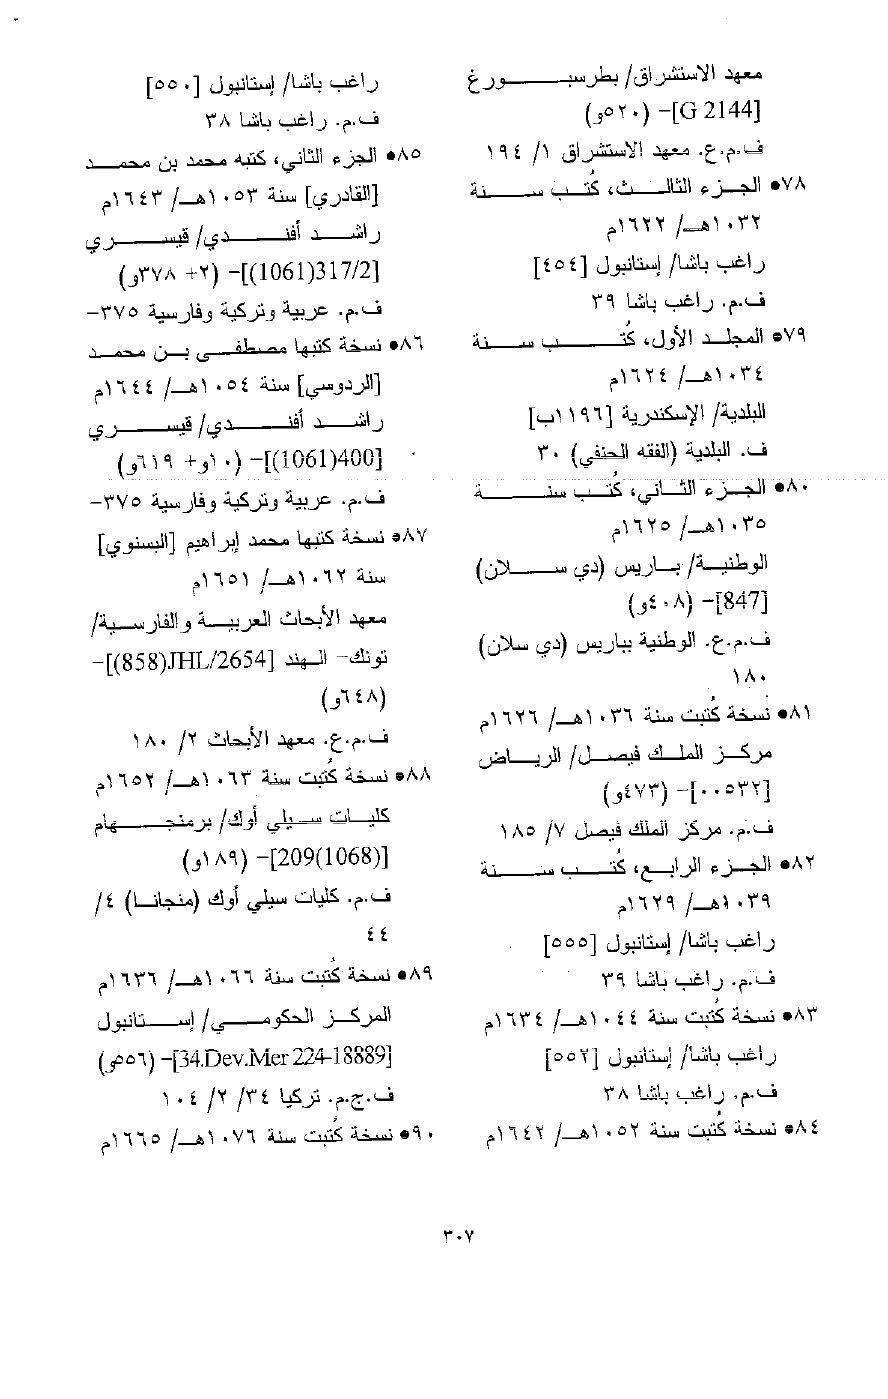 معهد الاستشراق/ بطرسبورغ
[G 2144]– (٥٢٠و)
ف.م.ع. معهد الاستشراق ١/ ١٩٤
٧٨• الجزء الثالث، كُتب سنة
١٠٣٢هـ/ ١٦٢٢م
راغب باشا/ إستانبول [٤٥٤]
ف.م. راغب باشا ٣٩
٧٩• المجلد الأول، كُتب سنة
١٠٣٤هـ/ ١٦٢٤م
البلدية/ الإسكندرية [١١٩٦ب]
ف. البلدية (الفقه الحنفي) ٣٠
٨٠• الجزء الثاني، كُتب سنة
١٠٣٥هـ/ ١٦٢٥م
الوطنية/ باريس (دي سلان)
[847]– (٤٠٨و)
ف.م.ع. الوطنية بباريس (دي سلان)
١٨٠
٨١• نسخة كُتبت سنة ١٠٣٦هـ/ ١٦٢٦م
مركز الملك فيصل/ الرياض
[٠٠٥٣٢]– (٤٧٣و)
ف.م. مركز الملك فيصل ٧/ ١٨٥
٨٢• الجزء الرابع، كُتب سنة
١٠٣٩هـ/ ١٦٢٩م
راغب باشا/ إستانبول [٥٥٥]
ف.م. راغب باشا ٣٩
٨٣• نسخة كُتبت سنة ١٠٤٤هـ/ ١٦٣٤م
راغب باشا/ إستانبول [٥٥٢]
ف.م. راغب باشا ٣٨
٨٤• نسخة كُتبت سنة ١٠٥٢هـ/ ١٦٤٢م
راغب باشا/ إستانبول [٥٥٠]
ف.م. راغب باشا ٣٨
٨٥• الجزء الثاني، كتبه محمد بن محمد
[القادري] سنة ١٠٥٣هـ/ ١٦٤٣م
راشد أفندي/ قيسري
[317/2(1061)]– (٢+ ٣٧٨و)
ف.م. عربية وتركية وفارسية ٣٧٥–
٨٦• نسخة كتبها مصطفى بن محمد
[الردوسي] سنة ١٠٥٤هـ/ ١٦٤٤م
راشد أفندي/ قيسري
[400(1061)]– (١٠و+ ٦١٩و)
ف.م. عربية وتركية وفارسية ٣٧٥–
٨٧• نسخة كتبها محمد إبراهيم [البسنوي]
سنة ١٠٦٢هـ/ ١٦٥١م
معهد الأبحاث العربية والفارسية/
تونك– الهند [JHL/2654(858)]–
(٦٤٨و)
ف.م.ع. معهد الأبحاث ٢/ ١٨٠
٨٨• نسخة كُتبت سنة ١٠٦٣هـ/ ١٦٥٢م
كليات سيلي أوك/ برمنجهام
[209(1068)]– (١٨٩و)
ف.م. كليات سيلي أوك (منجانا) ٤/
٤٤
٨٩• نسخة كُتبت سنة ١٠٦٦هـ/ ١٦٣٦م
المركز الحكومي/ إستانبول
[34.Dev.Mer 224-18889]– (٥٥٦و)
ف.ج.م. تركيا ٣٤/ ٢/ ١٠٤
٩٠• نسخة كُتبت سنة ١٠٧٦هـ/ ١٦٦٥م
٣٠٧